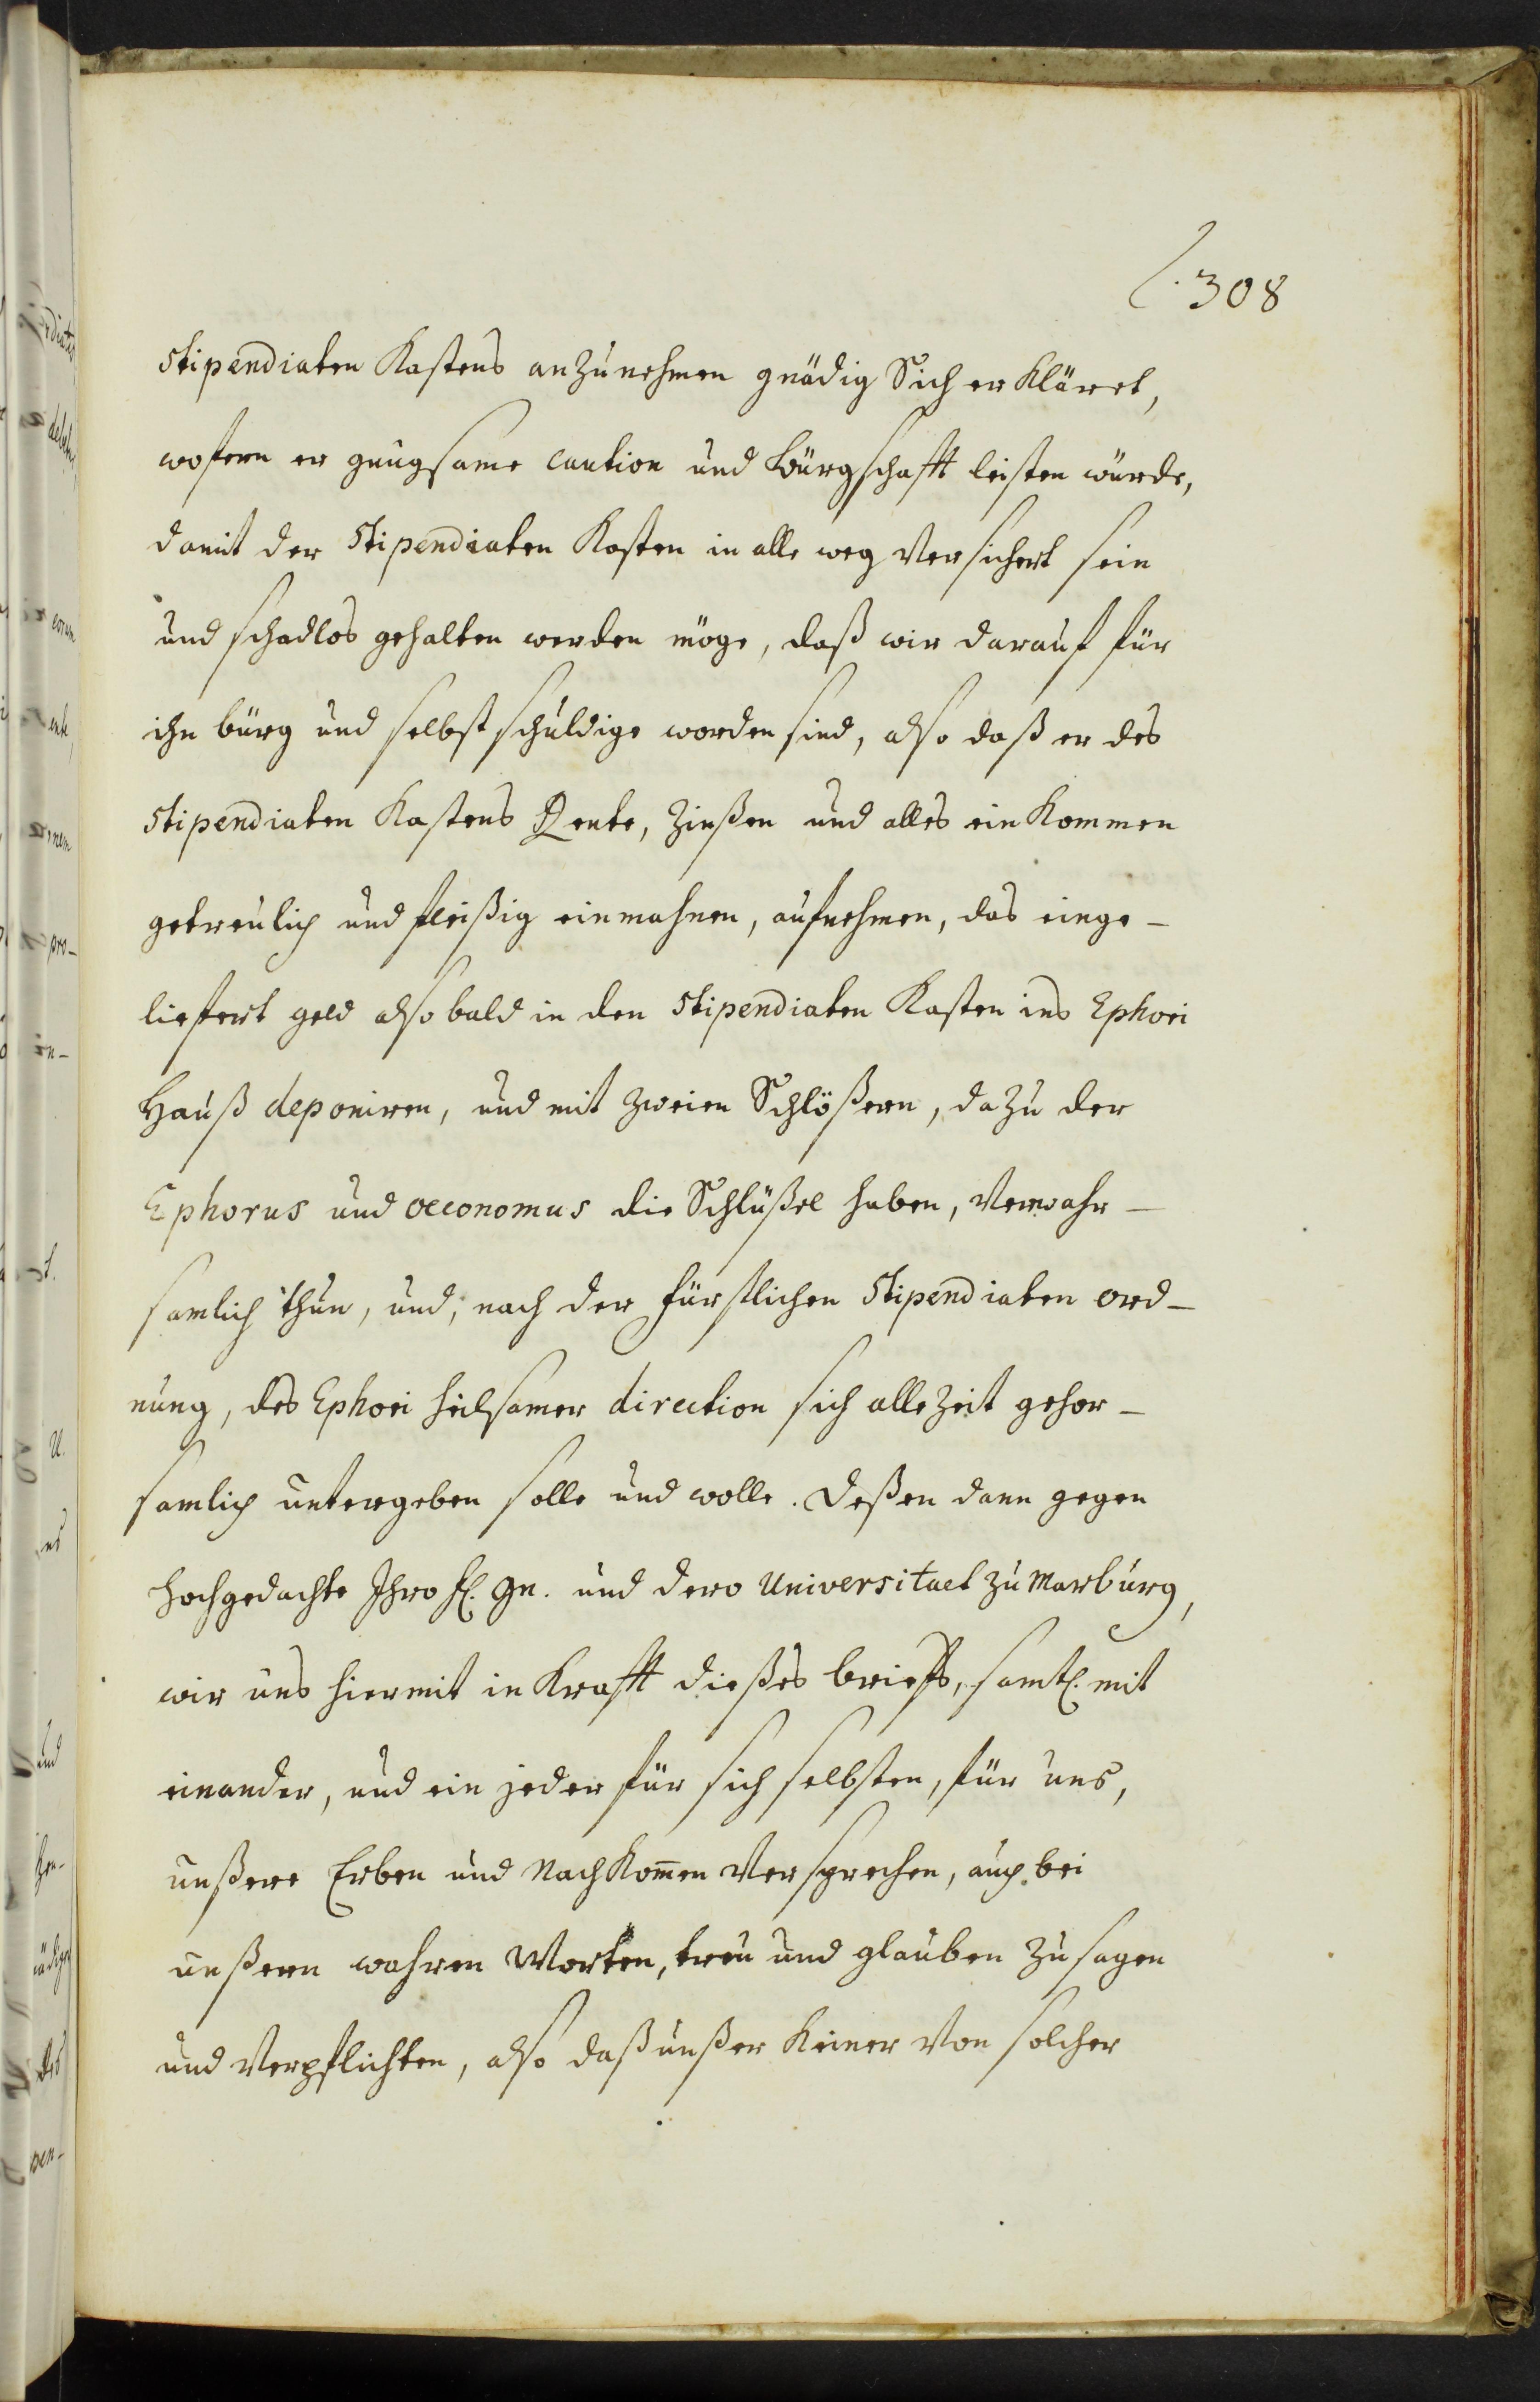 308
Stipendiaten Kastens anzunehmen gnädig Sich erkläret,
wofern er gnugsame Caution und Bürgschafft leisten würde,
damit der Stipendiaten Kasten in alle weg versichert sein
und schadlos gehalten werden möge, daß wir darauf für
ihn bürg und selbstschuldige worden sind, also daß er des
Stipendiaten Kastens Rente, Zinßen und alles einkommen
getreulich und fleißig einmahnen, aufnehmen, das einge-
liefert geld alsobald in den Stipendiaten Kasten ins Ephori
Hauß deponiren, und mit zweien Schlößern, dazu der
Ephorus und oeconomus die Schlüßel haben, verwahr-
samlich thun, und, nach der fürstlichen Stipendiaten ord-
nung, des Ephori heilsamer direction sich allezeit gehor-
samlich untergeben solle und wolle. Deßen dann gegen
hochgedachte Ihro fl. Gn. und dero Universitaet zu Marburg,
wir uns hiermit in Krafft dießes brieffs, samtl. mit
einander, und ein jeder für sich selbsten, für uns,
unßere Erben und Nachkom̄en versprechen, auch bei
unßern wahren Worten, treu und glauben zusagen
und verpflichten, also daß unßer keiner von solcher